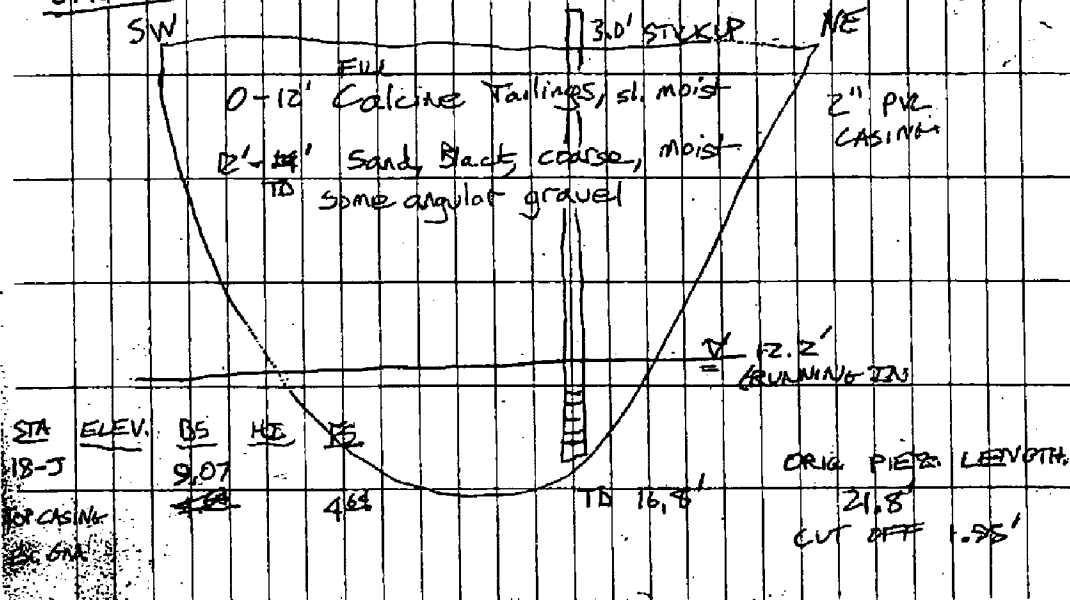 SW
3.0' STICKUP
NE
Fill
0-12' Calcine Tailings, sl. moist
2" PVC
CASING
12'- Sand, Black, coarse, moist
TD some angular gravel
12.2'
RUNNING IN
STA ELEV. BS HI FS
18-J 9.07
ORIG. PIEZ. LENGTH
4.64 TD 16.8' 21.8'
CASING
CUT OFF 1.85'